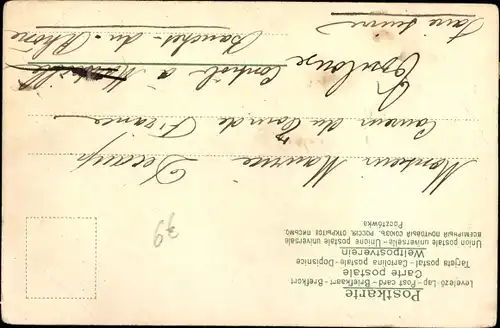 Postkarte
Levelező-Lap - Post card - Briefkaart - Brefkort
Carte postale
Tarjeta postal - Cartolina postale - Dopisnice
Weltpostverein
Union postale universelle - Unione postale universale
ВСЕМІРНЫЙ ПОЧТОВЫЙ СОЮЗЪ. РОССІЯ. ОТКРЫТОЕ ПИСЬМО.
Pocztówka
Monsieur Maurice
Coureur du Tour de France
Contrôl à Marseille Toulouse
Bouches-du-Rhône
faire suivre
39